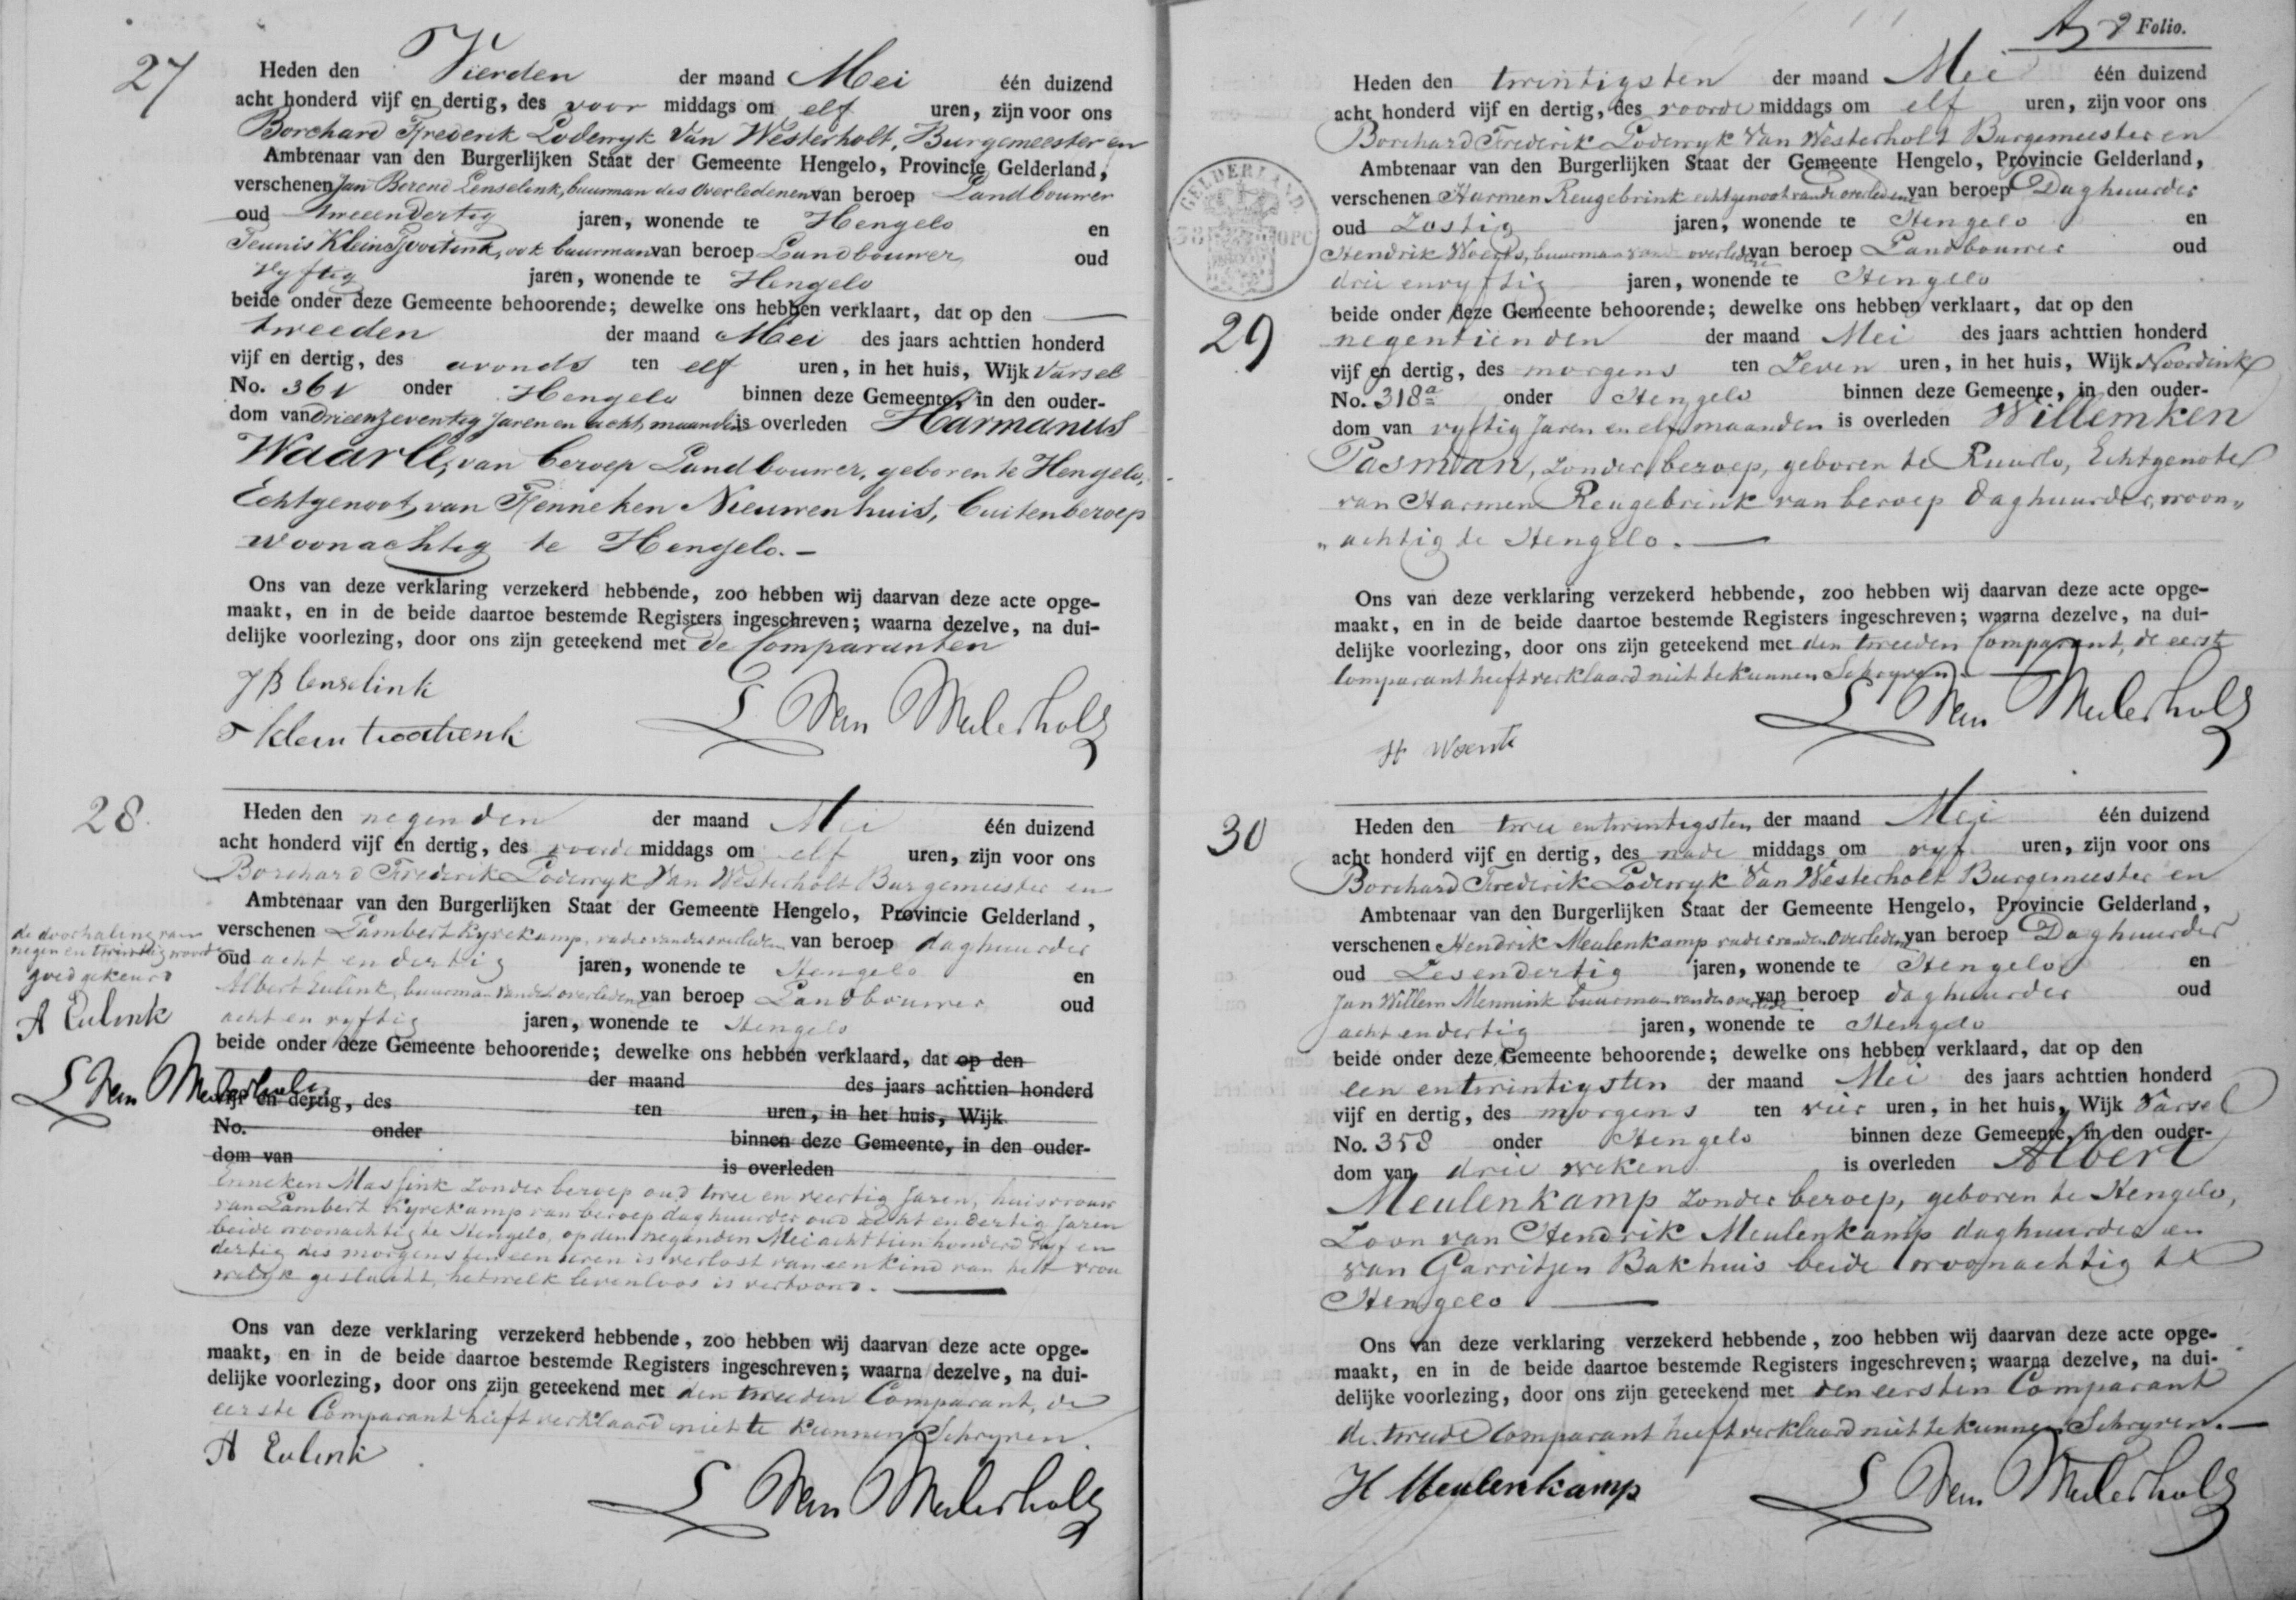 27
Heden den Vierden der maand Mei één duizend
acht honderd vijf en dertig, des voor middags om elf uren, zijn voor ons
Borchard Frederik Lodewyk Van Westerholt, Burgemeester en
Ambtenaar van den Burgerlijken Staat der Gemeente Hengelo, Provincie Gelderland,
verschenen Jan Berend Lenselink, buurman des Overledenen van beroep Landbouwer
oud tweeendertig jaren, wonende te Hengelo en
Teunis Klein Tjooitink, ook buurman van beroep Landbouwer oud
Vyftig jaren, wonende te Hengelo
beide onder deze Gemeente behoorende; dewelke ons hebben verklaart, dat op den
tweeden der maand Mei des jaars achttien honderd
vijf en dertig, des avonds ten elf uren, in het huis, Wijk Varsel
No. 361 onder Hengelo binnen deze Gemeente, in den ouder-
dom van drieenzeventig Jaren en acht maanden is overleden Harmanus
Waarle, van beroep Landbouwer, geboren te Hengelo,
Echtgenoot van Fenneken Nieuwenhuis, buiten beroep
woonachtig te Hengelo. -
Ons van deze verklaring verzekerd hebbende, zoo hebben wij daarvan deze acte opge-
maakt, en in de beide daartoe bestemde Registers ingeschreven; waarna dezelve, na dui-
delijke voorlezing, door ons zijn geteekend met de Comparanten
J B Lenselink
T Klein
L Van Westerholt
28.
Heden den negenden der maand Mei één duizend
acht honderd vijf en dertig, des voorde middags om elf uren, zijn voor ons
Borchard Frederik Lodewyk Van Westerholt Burgemeester en
Ambtenaar van den Burgerlijken Staat der Gemeente Hengelo, Provincie Gelderland,
verschenen Lambert Kyrekamp, vader van de overleden van beroep daghuurder
oud acht en dertig jaren, wonende te Hengelo en
Albert Eulink, buurman van de overleden van beroep Landbouwer oud
acht en vyftig jaren, wonende te Hengelo
beide onder deze Gemeente behoorende; dewelke ons hebben verklaard, dat op den
der maand des jaars achttien honderd
vijf en dertig, des ten uren, in het huis, Wijk
No. onder binnen deze Gemeente, in den ouder-
dom van is overleden
Enneken Massink zonder beroep oud twee en veertig Jaren, huisvrouw
van Lambert Kyrekamp van beroep daghuurder oud acht en dertig Jaren
beide woonachtig te Hengelo, op den negenden Mei achttien honderd vyf en
dertig des morgens ten een uren is verlost van een kind van het vrou
welijk geslacht, hetwelk levenloos is vertoond.
Ons van deze verklaring verzekerd hebbende, zoo hebben wij daarvan deze acte opge-
maakt, en in de beide daartoe bestemde Registers ingeschreven; waarna dezelve, na dui-
delijke voorlezing, door ons zijn geteekend met den tweeden Comparant, de
eerste Comparant heeft verklaard niet te kunnen Schryven.
A Eulink
L Van Westerholt
de doorhaling van
negen en twintig woorden
goed gekeurd
A Eulink
L Van Westerholt
Folio.
GELDERLAND
Heden den twintigsten der maand Mei één duizend
acht honderd vijf en dertig, des voorde middags om elf uren, zijn voor ons
Borchard Frederik Lodewyk Van Westerholt Burgemeester en
Ambtenaar van den Burgerlijken Staat der Gemeente Hengelo, Provincie Gelderland,
verschenen Harmen Reugebrink echtgenoot van de overleden van beroep Daghuurder
oud Zestig jaren, wonende te Hengelo en
Hendrik buurman van de overledene van beroep Landbouwer oud
drie en vyftig jaren, wonende te Hengelo
beide onder deze Gemeente behoorende; dewelke ons hebben verklaart, dat op den
29
negentienden der maand Mei des jaars achttien honderd
vijf en dertig, des morgens ten Zeven uren, in het huis, Wijk Noordink
No. 318a onder Hengelo binnen deze Gemeente, in den ouder-
dom van vyftig Jaren en elf maanden is overleden Willemken
Pasman, zonder beroep, geboren te Ruurlo, Echtgenote
van Harmen Reugebrink van beroep daghuurder, woon„
„achtig te Hengelo.
Ons van deze verklaring verzekerd hebbende, zoo hebben wij daarvan deze acte opge-
maakt, en in de beide daartoe bestemde Registers ingeschreven; waarna dezelve, na dui-
delijke voorlezing, door ons zijn geteekend met den tweeden Comparant, de eerste
Comparant heeft verklaard niet te kunnen Schryven
L Van Westerholt
H
30
Heden den twee en twintigsten der maand Mei één duizend
acht honderd vijf en dertig, des nade middags om vyf uren, zijn voor ons
Borchard Frederik Lodewyk Van Westerholt Burgemeester en
Ambtenaar van den Burgerlijken Staat der Gemeente Hengelo, Provincie Gelderland,
verschenen Hendrik Meulenkamp vader van den Overleden van beroep Daghuurder
oud Zesendertig jaren, wonende te Hengelo en
Jan Willem Mennink buurman van de overleden van beroep daghuurder oud
acht en dertig jaren, wonende te Hengelo
beide onder deze Gemeente behoorende; dewelke ons hebben verklaard, dat op den
een en twintigsten der maand Mei des jaars achttien honderd
vijf en dertig, des morgens ten vier uren, in het huis, Wijk Varsel
No. 358 onder Hengelo binnen deze Gemeente, in den ouder-
dom van drie weken is overleden Albert
Meulenkamp zonder beroep, geboren te Hengelo,
Zoon van Hendrik Meulenkamp daghuurder en
van Garritjen Bakhuis beide woonachtig te
Hengelo
Ons van deze verklaring verzekerd hebbende, zoo hebben wij daarvan deze acte opge-
maakt, en in de beide daartoe bestemde Registers ingeschreven; waarna dezelve, na dui-
delijke voorlezing, door ons zijn geteekend met den eersten Comparant
de tweede Comparant heeft verklaard niet te kunnen Schryven. -
H Meulenkamp
L Van Westerholt